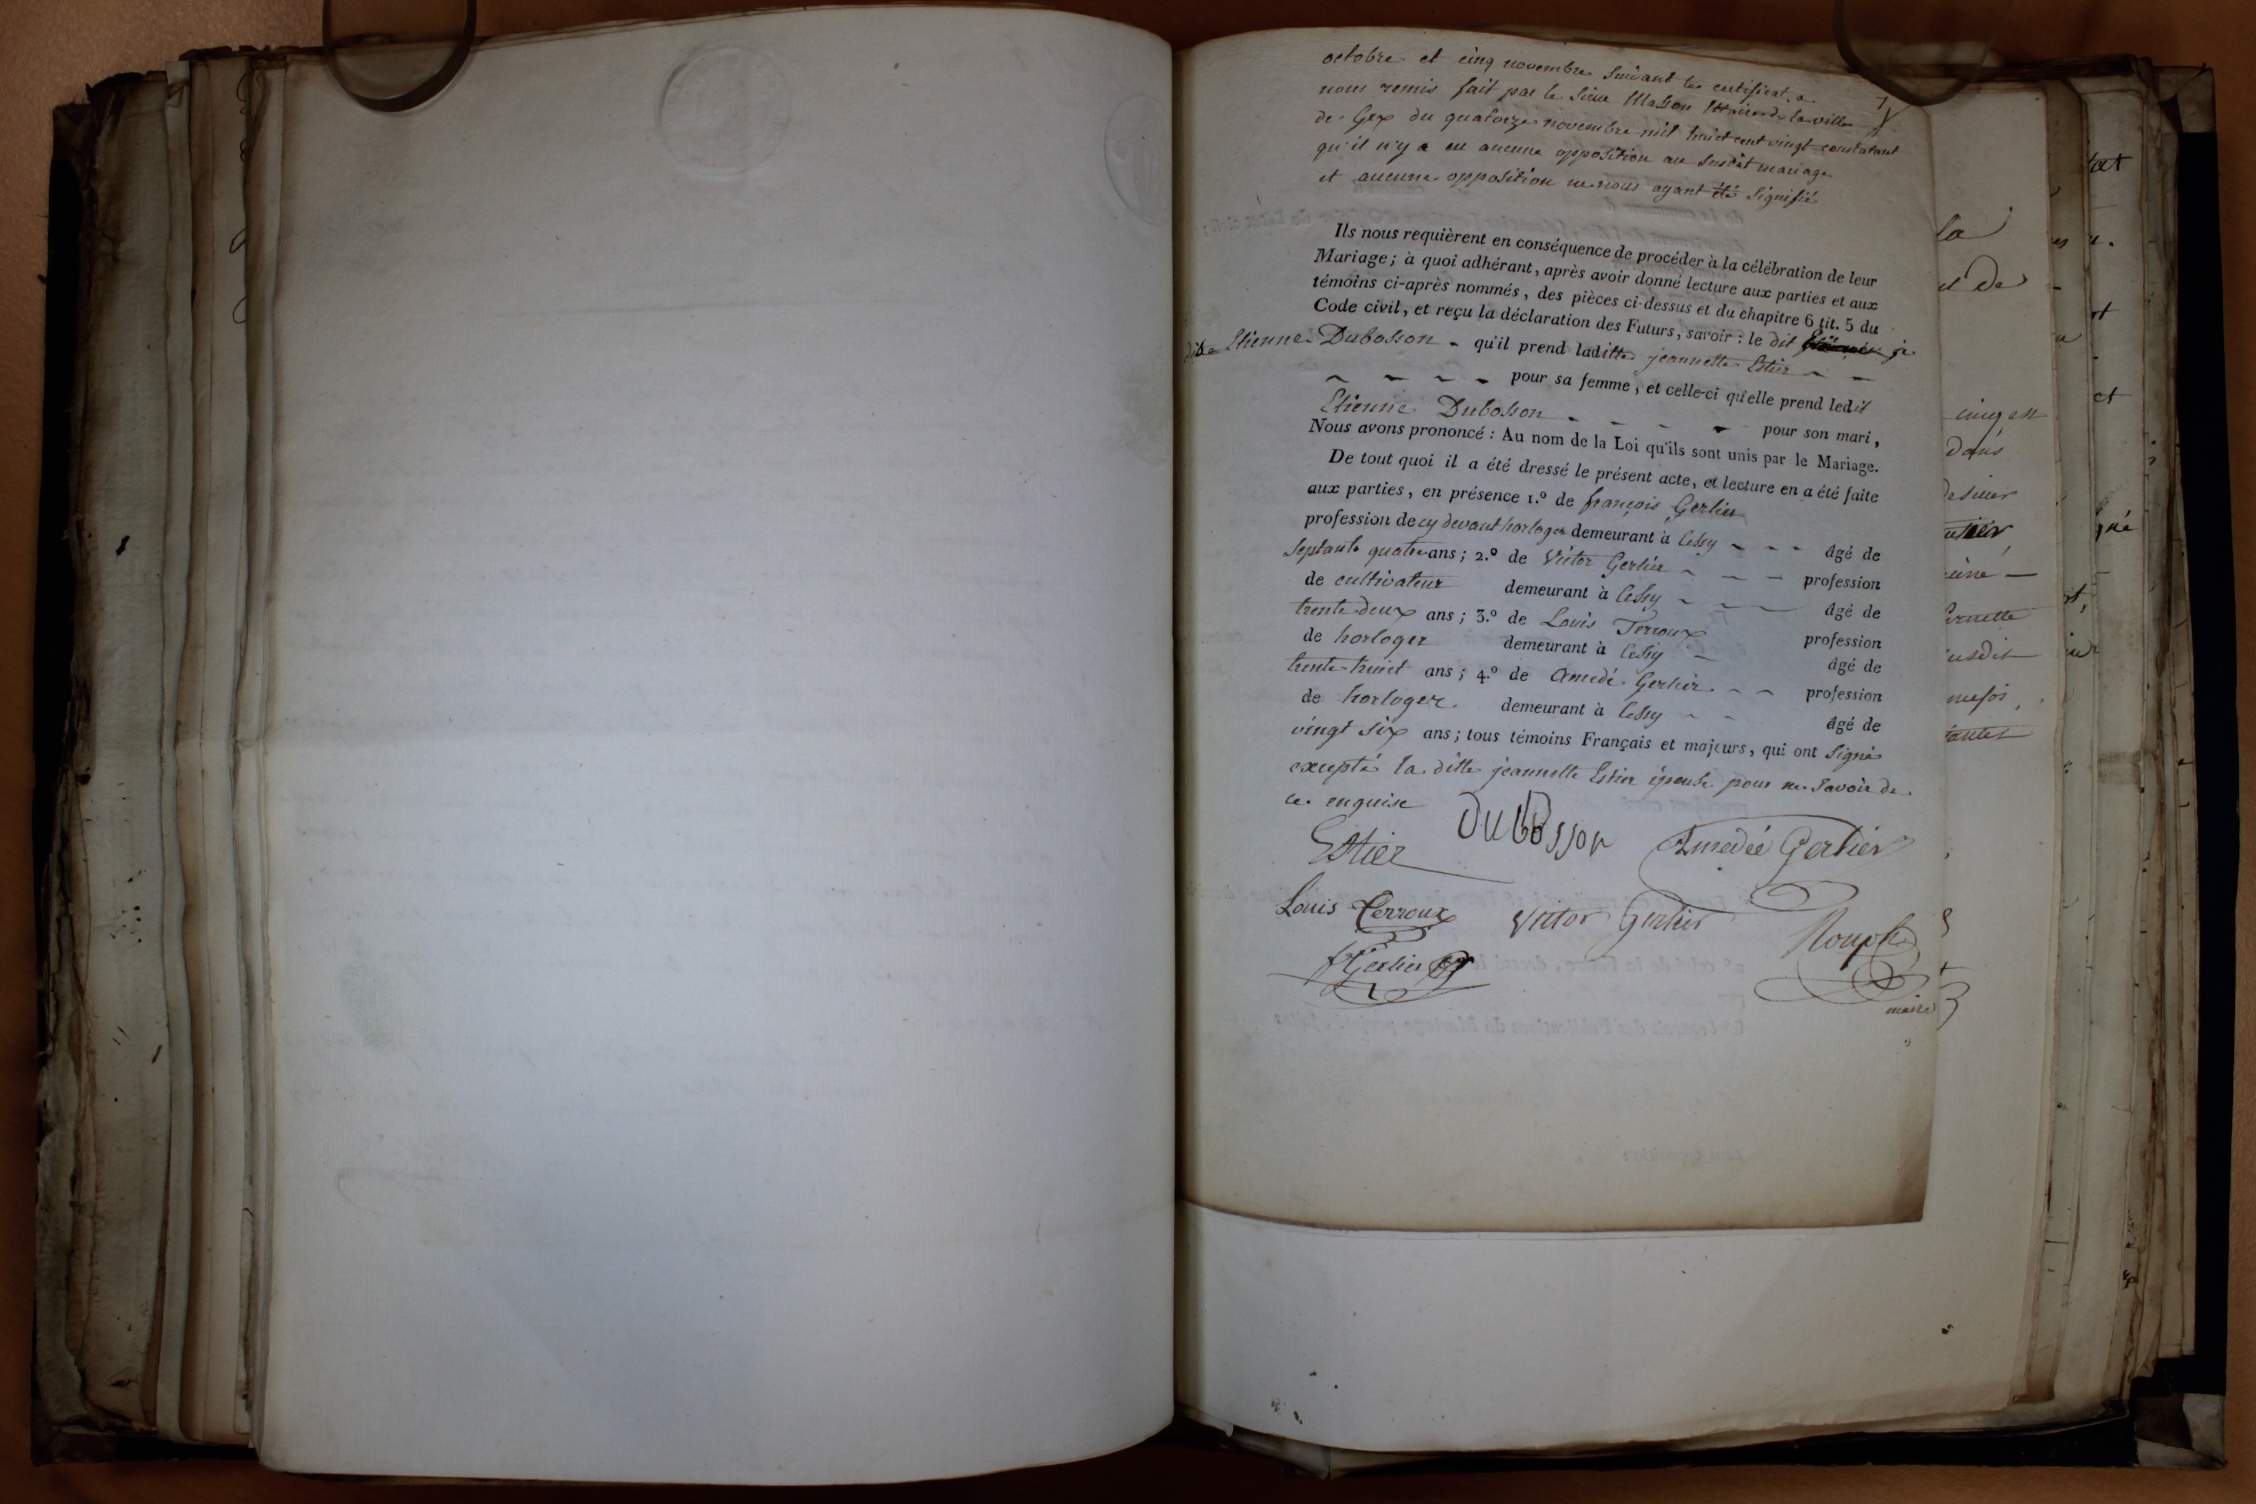 octobre et cinq novembre suivant le certificat a
nous remis fait par le sieur Masson Maire de la ville
de Gex du quatorze novembre mil huit cent vingt constatant
qu'il n'y a eu aucune opposition au susdit mariage
et aucune opposition ne nous ayant été signifié
Ils nous requièrent en conséquence de procéder à la célébration de leur
Mariage; à quoi adhérant, après avoir donné lecture aux parties et aux
témoins ci-après nommés, des pièces ci-dessus et du chapitre 6 tit. 5 du
Code civil, et reçu la déclaration des Futurs, savoir : le dit
Etienne Dubosson qu'il prend laditte jeannette Estier
pour sa femme, et celle-ci qu'elle prend ledit
Etienne Dubosson pour son mari,
Nous avons prononcé : Au nom de la Loi qu'ils sont unis par le Mariage.
De tout quoi il a été dressé le présent acte, et lecture en a été faite
aux parties, en présence 1.º de françois Gerlier
profession de cy devant horloger demeurant à Cessy âgé de
septante quatre ans; 2.º de Victor Gerlier profession
de cultivateur demeurant à Cessy âgé de
trente deux ans; 3.º de Louis Terroux profession
de horloger demeurant à Cessy âgé de
trente huit ans; 4.º de Amedé Gerlier profession
de horloger demeurant à Cessy âgé de
vingt six ans; tous témoins Français et majeurs, qui ont signé
excepté la ditte jeannette Estier épouse pour ne savoir de
ce enquise
Estier Dubosson Amedée Gerlier
Louis Terroux Victor Gerlier
fs Gerlier Rouph
maire
la
et de
cinq est
dans
susdit
et